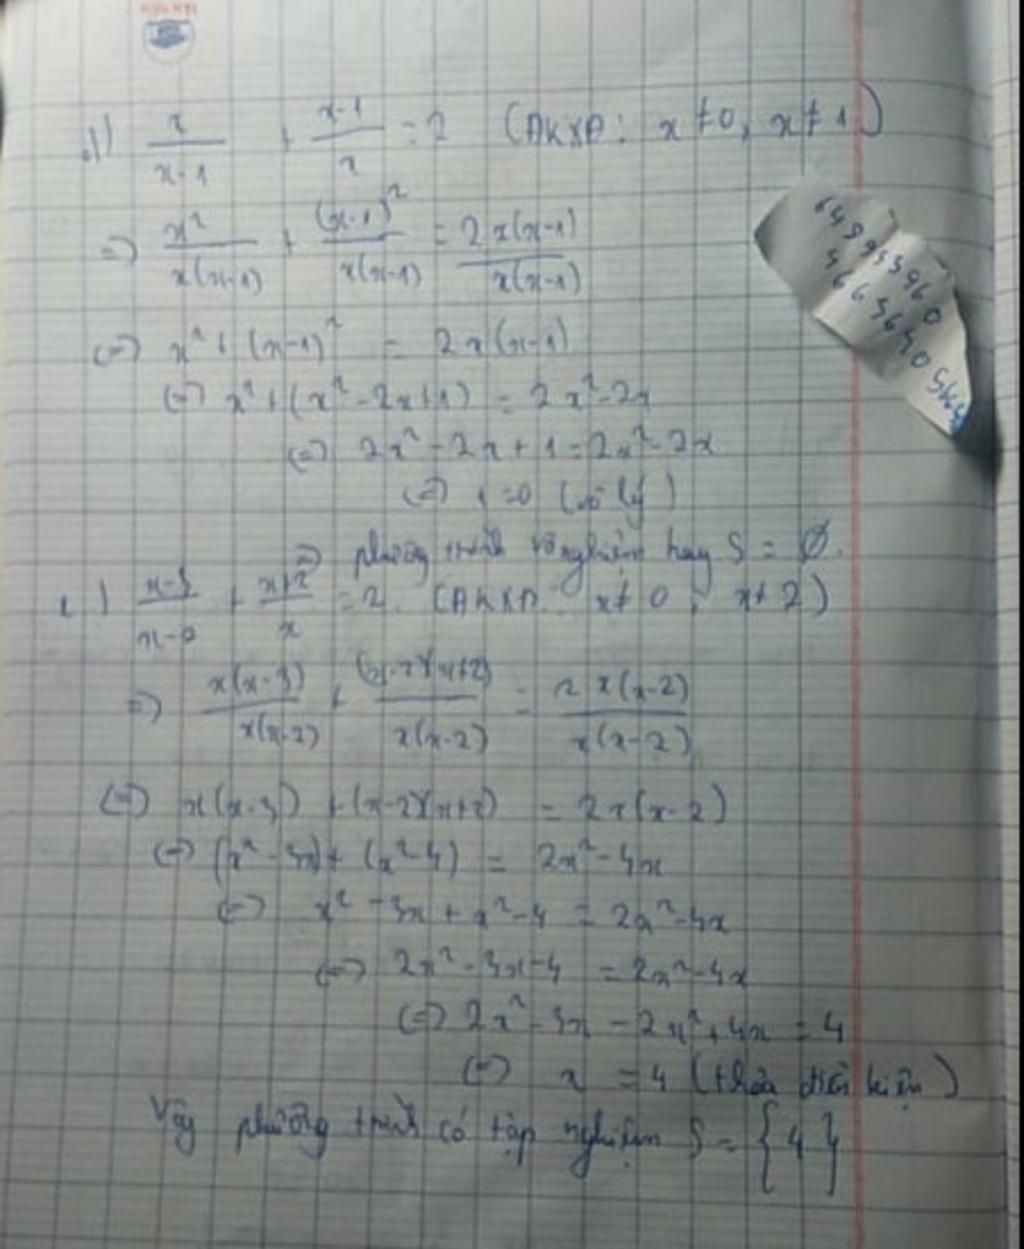 d) x/(x-1) + (x-1)/x = 2 (ĐKXĐ: x ≠ 0, x ≠ 1)
=> x²/(x(x-1)) + (x-1)²/(x(x-1)) = 2x(x-1)/(x(x-1))
(=) x² + (x-1)² = 2x(x-1)
(=) x² + (x² - 2x + 1) = 2x² - 2x
(=) 2x² - 2x + 1 = 2x² - 2x
(=) 1 = 0 (vô lý)
=> phương trình vô nghiệm hay S = Ø.
(x-3)/ + (x+2)/x = 2 (ĐKXĐ: x ≠ 0; x ≠ 2)
=> x(x-3)/(x(x-2)) + (x-2)(x+2)/(x(x-2)) = 2x(x-2)/(x(x-2))
(=) x(x-3) + (x-2)(x+2) = 2x(x-2)
(=) (x² - 3x) + (x² - 4) = 2x² - 4x
(=) x² - 3x + x² - 4 = 2x² - 4x
(=) 2x² - 3x - 4 = 2x² - 4x
(=) 2x² - 3x - 2x² + 4x = 4
(=) x = 4 (thỏa điều kiện)
Vậy phương trình có tập nghiệm S = {4}